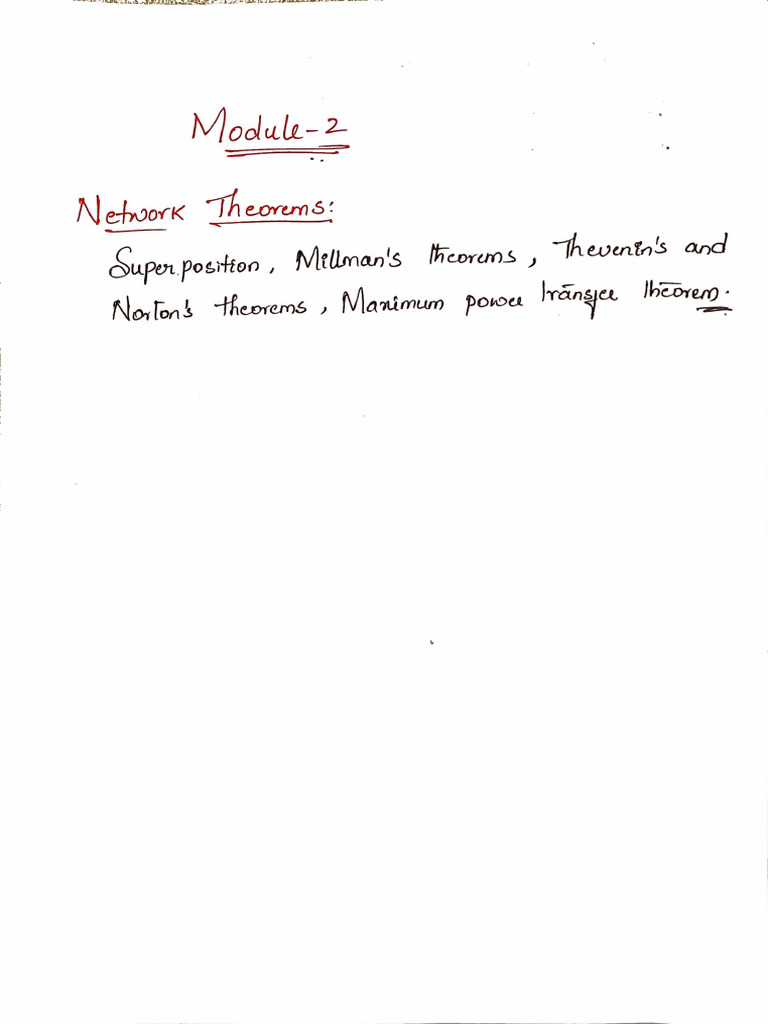 Module-2
Network Theorems:
Superposition, Millman's theorems, Thevenin's and
Norton's theorems, Maximum power transfer theorem.